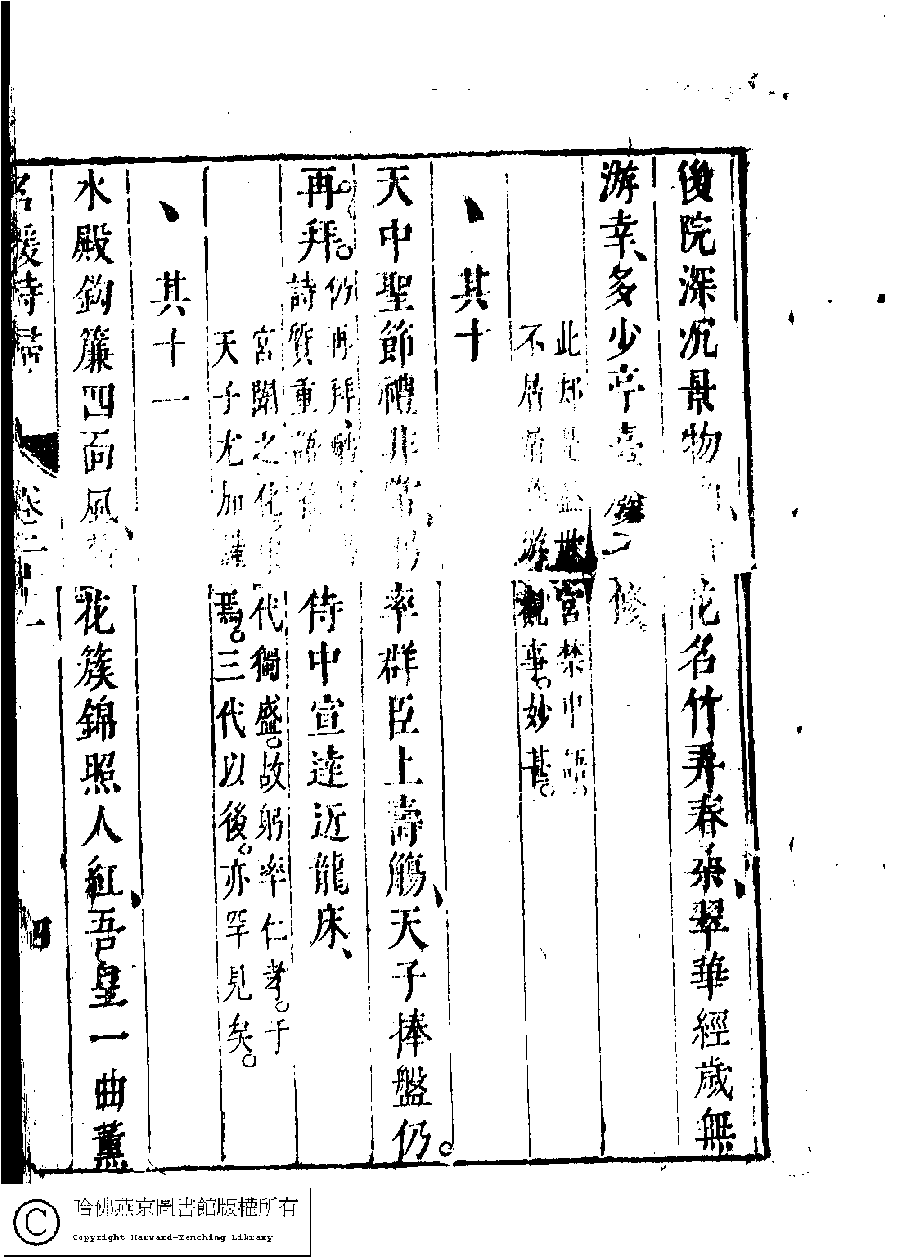 後院深沉景物、花名竹弄春柔、翠華經歲無
游幸、多少亭臺修。
此却是世宮禁中語。
不屑游觀事。妙甚。
其十
天中聖節禮非常、率群臣上壽觴、天子捧盤仍
再拜。侍中宣達近龍床、
仍再拜
詩質重語
宮闈之化代獨盛。故躬率仁孝。于
天子尤加謹焉。三代以後。亦罕見矣。
其十一
水殿鈎簾四面風、花簇錦照人紅、吾皇一曲薰
名媛詩歸 卷 四
哈佛燕京圖書館版權所有
Copyright Harvard-Yenching Library